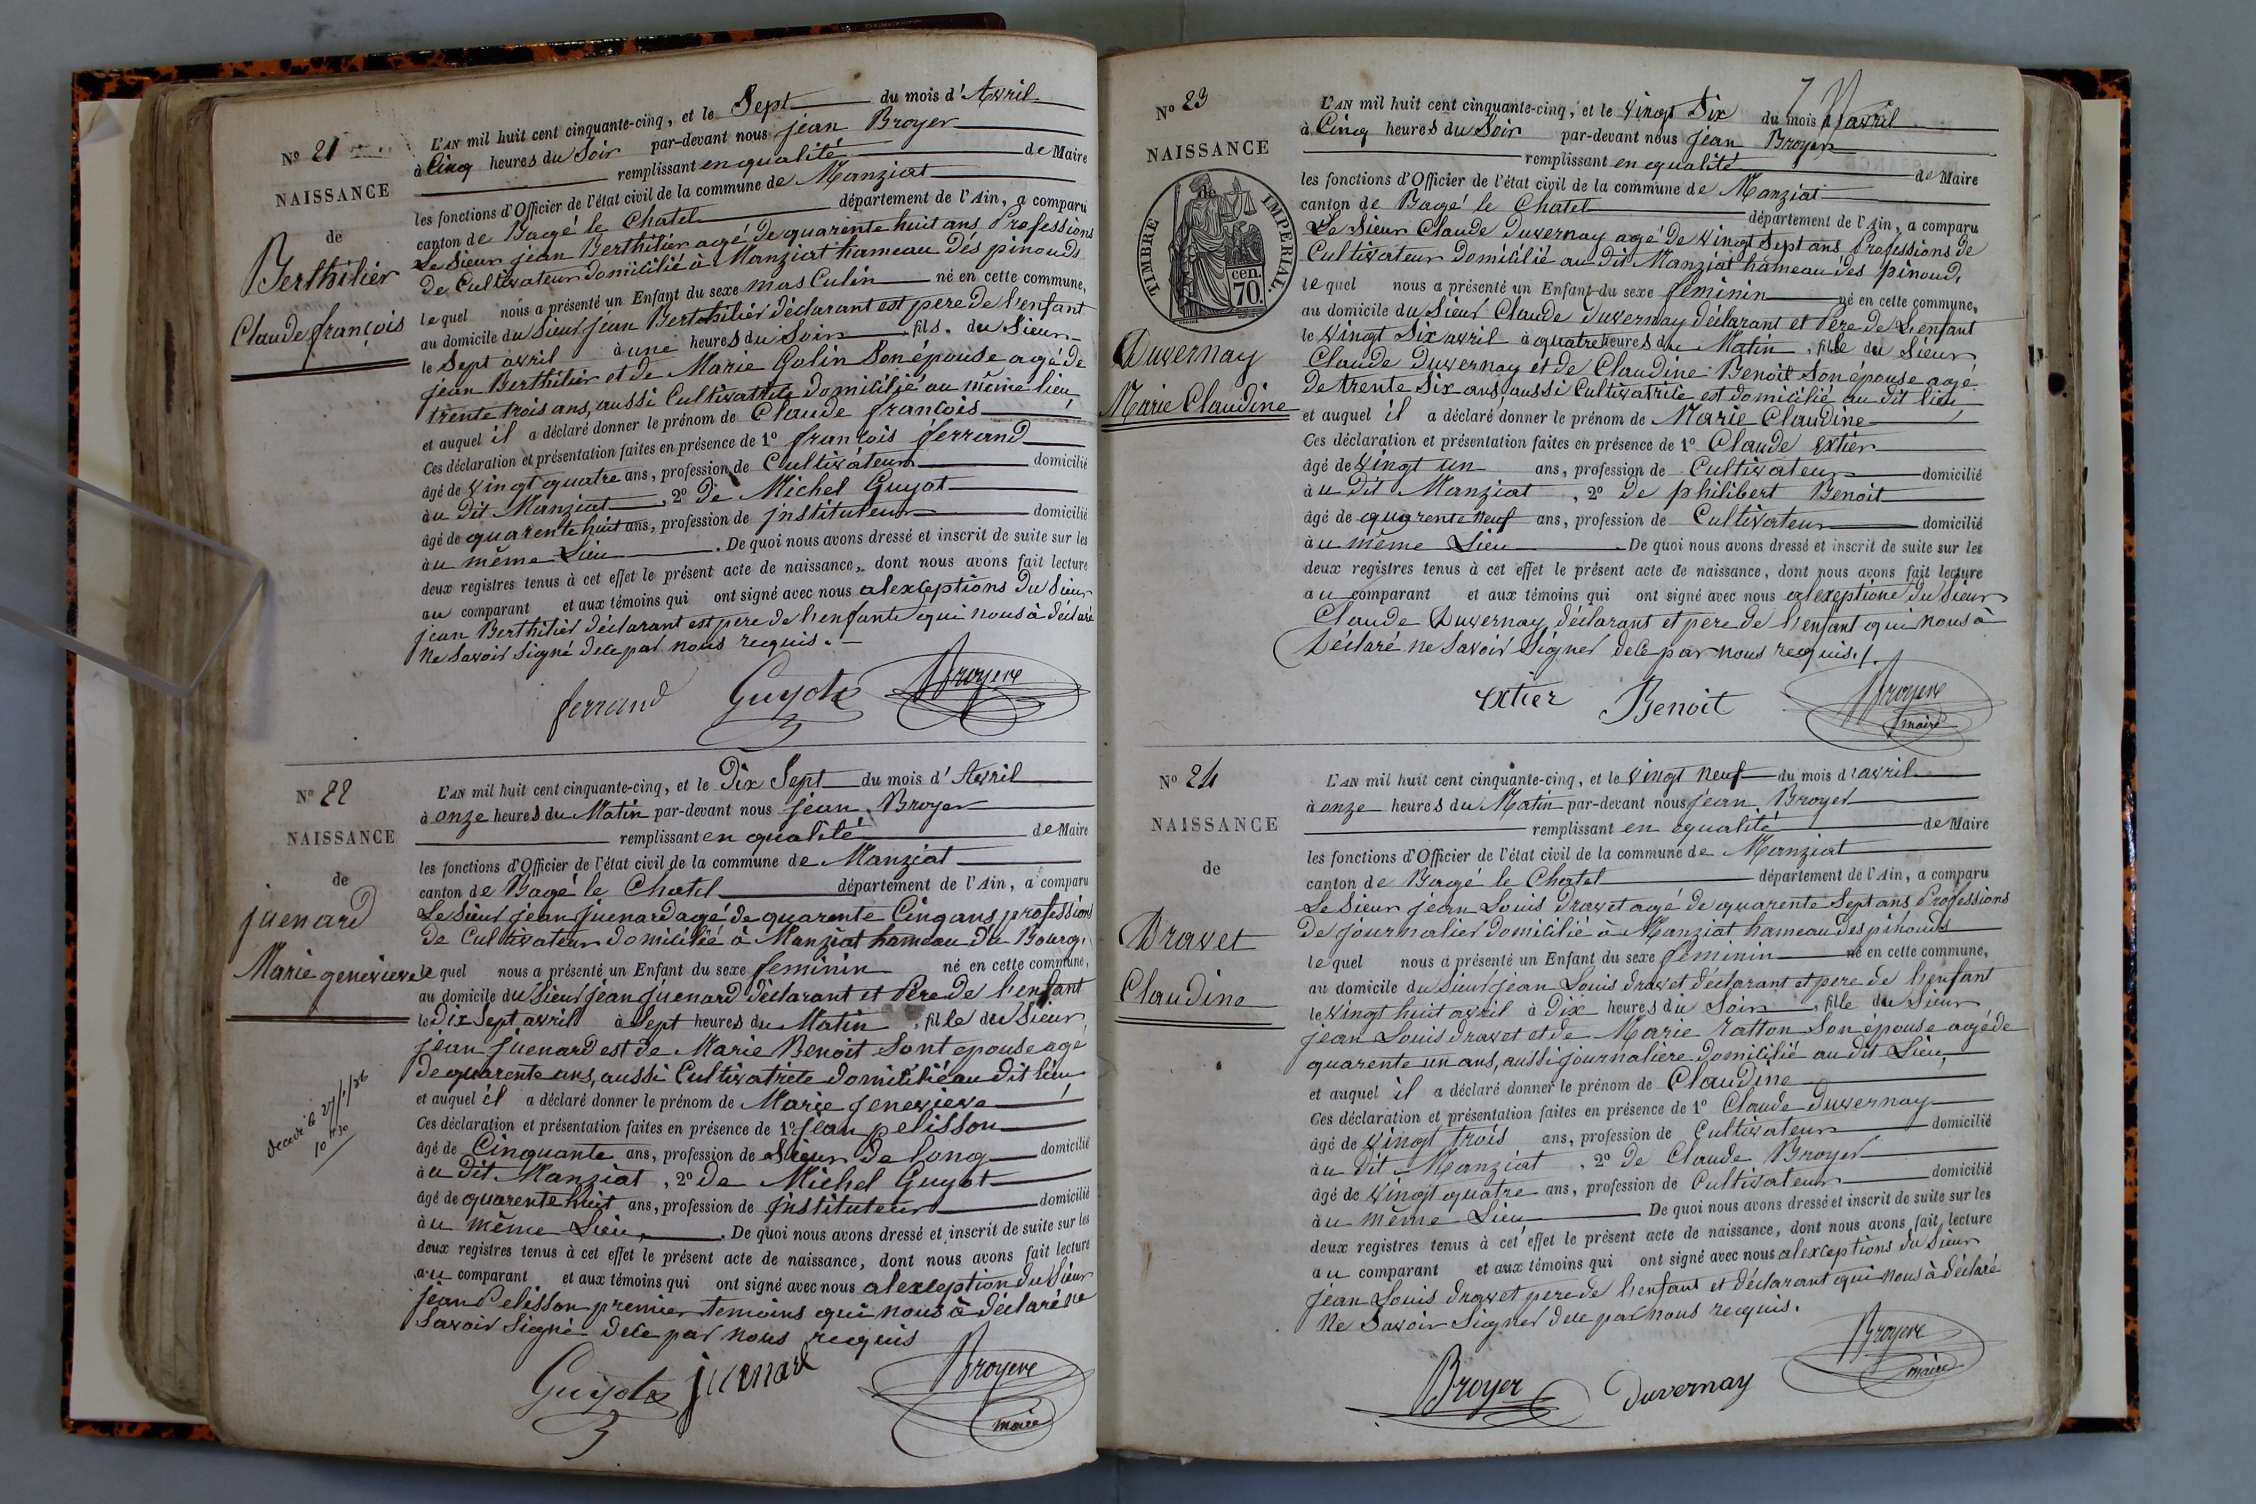 N° 21
NAISSANCE
de
Berthilier
Claude françois
L'AN mil huit cent cinquante-cinq, et le Sept du mois d'Avril
à Cinq heures du Soir par-devant nous jean Broyer
remplissant en qualité de Maire
les fonctions d'Officier de l'état civil de la commune de Manziat
canton de Bagé le Chatel département de l'Ain, a comparu
Le Sieur jean Berthilier agé de quarente huit ans Professions
de Cultivateur domicilié à Manziat hameau des pinouds
lequel nous a présenté un Enfant du sexe masculin né en cette commune,
au domicile du Sieur jean Berthilier déclarant est pere de l'enfant
le Sept avril à une heures du Soir fils. du Sieur
jean Berthilier et de Marie Golin Son épouse agé de
trente trois ans, aussi Cultivatrice domicilié au même lieu,
et auquel il a déclaré donner le prénom de Claude francois
Ces déclaration et présentation faites en présence de 1° francois ferrand
âgé de vingt quatre ans, profession de Cultivateur domicilié
àu dit Manziat, 2° de Michel Guyot
âgé de quarente huit ans, profession de jnstituteur domicilié
àu même Lieu. De quoi nous avons dressé et inscrit de suite sur les
deux registres tenus à cet effet le présent acte de naissance, dont nous avons fait lecture
au comparant et aux témoins qui ont signé avec nous alexceptions du Sieur
jean Berthilier déclarant est pere de l'enfante qui nous à déclaré
ne Savoir Signé dece par nous requis.
ferrand Guyot Broyere
N° 22
NAISSANCE
de
juenard
Marie genevieve
decede le 27/1/26
10 h 30
L'AN mil huit cent cinquante-cinq, et le Dix Sept du mois d'Avril
à onze heures du Matin par-devant nous jean Broyer
remplissant en qualité de Maire
les fonctions d'Officier de l'état civil de la commune de Manziat
canton de Bagé le Chatel département de l'Ain, a comparu
Le Sieur jean juenard agé de quarente Cinq ans professions
de Cultivateur domicilié à Manziat hameau du Bourg,
lequel nous a présenté un Enfant du sexe feminin né en cette commune,
au domicile du Sieur jean juenard déclarant et Pere de l'enfant
le Dix Sept avril à Sept heures du Matin, fille du Sieur
jean juenard est de Marie Benoit Sont epouse age
de quarente ans, aussi Cultivatriéte domicilié au dit lieu
et auquel il a déclaré donner le prénom de Marie jenevieve
Ces déclaration et présentation faites en présence de 1° jean pelisson
âgé de Cinquante ans, profession de Sieur de long domicilié
àu dit Manziat, 2° de Michel Guyot
âgé de quarente huit ans, profession de jnstituteur domicilié
àu même Lieu. De quoi nous avons dressé et inscrit de suite sur les
deux registres tenus à cet effet le présent acte de naissance, dont nous avons fait lecture
au comparant et aux témoins qui ont signé avec nous alexception du Sieur
jean Pelisson premier temoins qui nous à déclaré ne
Savoir Signé dece par nous requis
Guyot juenard Broyere
maire
N° 23
NAISSANCE
TIMBRE IMPERIAL.
cen.
70.
Duvernay
Marie Claudine
L'AN mil huit cent cinquante-cinq, et le vingt Six du mois d'avril
à Cinq heures du Soir par-devant nous jean Broyer
remplissant en qualité de Maire
les fonctions d'Officier de l'état civil de la commune de Manziat
canton de Bagé le Chatel département de l'Ain, a comparu
Le Sieur Claude Duvernay agé de vingt Sept ans Professions de
Cultivateur domicilié au dit Manziat hameau des pinoud,
lequel nous a présenté un Enfant du sexe féminin né en cette commune,
au domicile du Sieur Claude Duvernay déclarant et Pere de L'enfant
le vingt Six avril à quatre heures du Matin, fille du Sieur
Claude Duvernay et de Claudine Benoit Son épouse agé
de trente Six ans, aussi Cultivatrice est domicilié au dit lieu
et auquel il a déclaré donner le prénom de Marie Claudine
Ces déclaration et présentation faites en présence de 1° Claude Extier
âgé de vingt un ans, profession de Cultivateur domicilié
àu dit Manziat, 2° de philibert Benoit
âgé de quarente neuf ans, profession de Cultivateur domicilié
àu même Lieu De quoi nous avons dressé et inscrit de suite sur les
deux registres tenus à cet effet le présent acte de naissance, dont nous avons fait lecture
au comparant et aux témoins qui ont signé avec nous alexeptione du Sieur
Claude Duvernay déclarant et pere de l'enfant qui nous à
Déclaré ne Savoir Signer dece par nous requis./.
extier Benoit Broyere
maire
N° 24
NAISSANCE
de
Dravet
Claudine
L'AN mil huit cent cinquante-cinq, et le vingt neuf du mois d'avril
à onze heures du Matin par-devant nous jean Broyer
remplissant en qualité de Maire
les fonctions d'Officier de l'état civil de la commune de Manziat
canton de Bagé le Chatel département de l'Ain, a comparu
Le Sieur jean Louis dravet agé de quarente Sept ans Professions
de journalier domicilié à Manziat hameau des pinouds
lequel nous a présenté un Enfant du sexe féminin né en cette commune,
au domicile du Sieur jean Louis dravet déclarant et pere de l'enfant
le vingt huit avril à Dix heures du Soir, fille du Sieur
jean Louis dravet et de Marie ratton Son épouse agé de
quarente un ans, aussi journaliere domicilié au dit Lieu,
et auquel il a déclaré donner le prénom de Claudine
Ces déclaration et présentation faites en présence de 1° Claude Duvernay
âgé de vingt trois ans, profession de Cultivateur domicilié
àu dit Manziat, 2° de Claude Broyer
âgé de vingt quatre ans, profession de Cultivateur domicilié
àu même Lieu De quoi nous avons dressé et inscrit de suite sur les
deux registres tenus à cet effet le présent acte de naissance, dont nous avons fait lecture
au comparant et aux témoins qui ont signé avec nous alexceptions du Sieur
jean Louis dravet pere de l'enfant et déclarant qui nous à déclaré
Ne Savoir Signer dece par nous requis.
Broyer Duvernay Broyere
maire